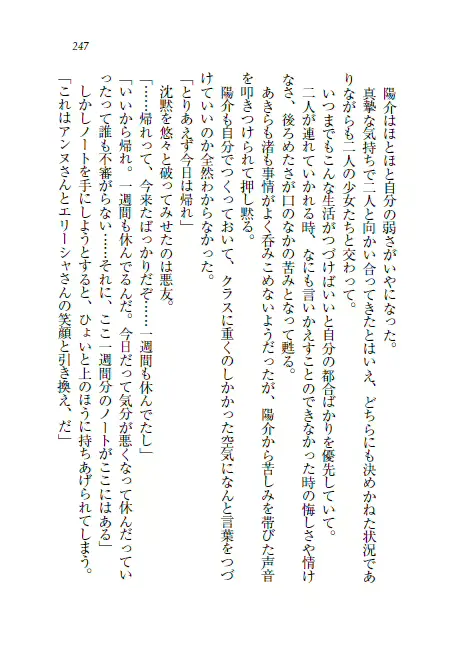 247
陽介はほとほと自分の弱さがいやになった。
真摯な気持ちで二人と向かい合ってきたとはいえ、どちらにも決めかねた状況であ
りながらも二人の少女たちと交わって。
いつまでもこんな生活がつづけばいいと自分の都合ばかりを優先していて。
二人が連れていかれる時、なにも言いかえすことのできなかった時の悔しさや情け
なさ、後ろめたさが口のなかの苦みとなって甦る。
あきらも渚も事情がよく呑みこめないようだったが、陽介から苦しみを帯びた声音
を叩きつけられて押し黙る。
陽介も自分でつくっておいて、クラスに重くのしかかった空気になんと言葉をつづ
けていいのか全然わからなかった。
「とりあえず今日は帰れ」
沈黙を悠々と破ってみせたのは悪友。
「……帰れって、今来たばっかりだぞ……一週間も休んでたし」
「いいから帰れ。一週間も休んでるんだ。今日だって気分が悪くなって休んだってい
ったって誰も不審がらない……それに、ここ一週間分のノートがここにはある」
しかしノートを手にしようとすると、ひょいと上のほうに持ちあげられてしまう。
「これはアンヌさんとエリーシャさんの笑顔と引き換え、だ」